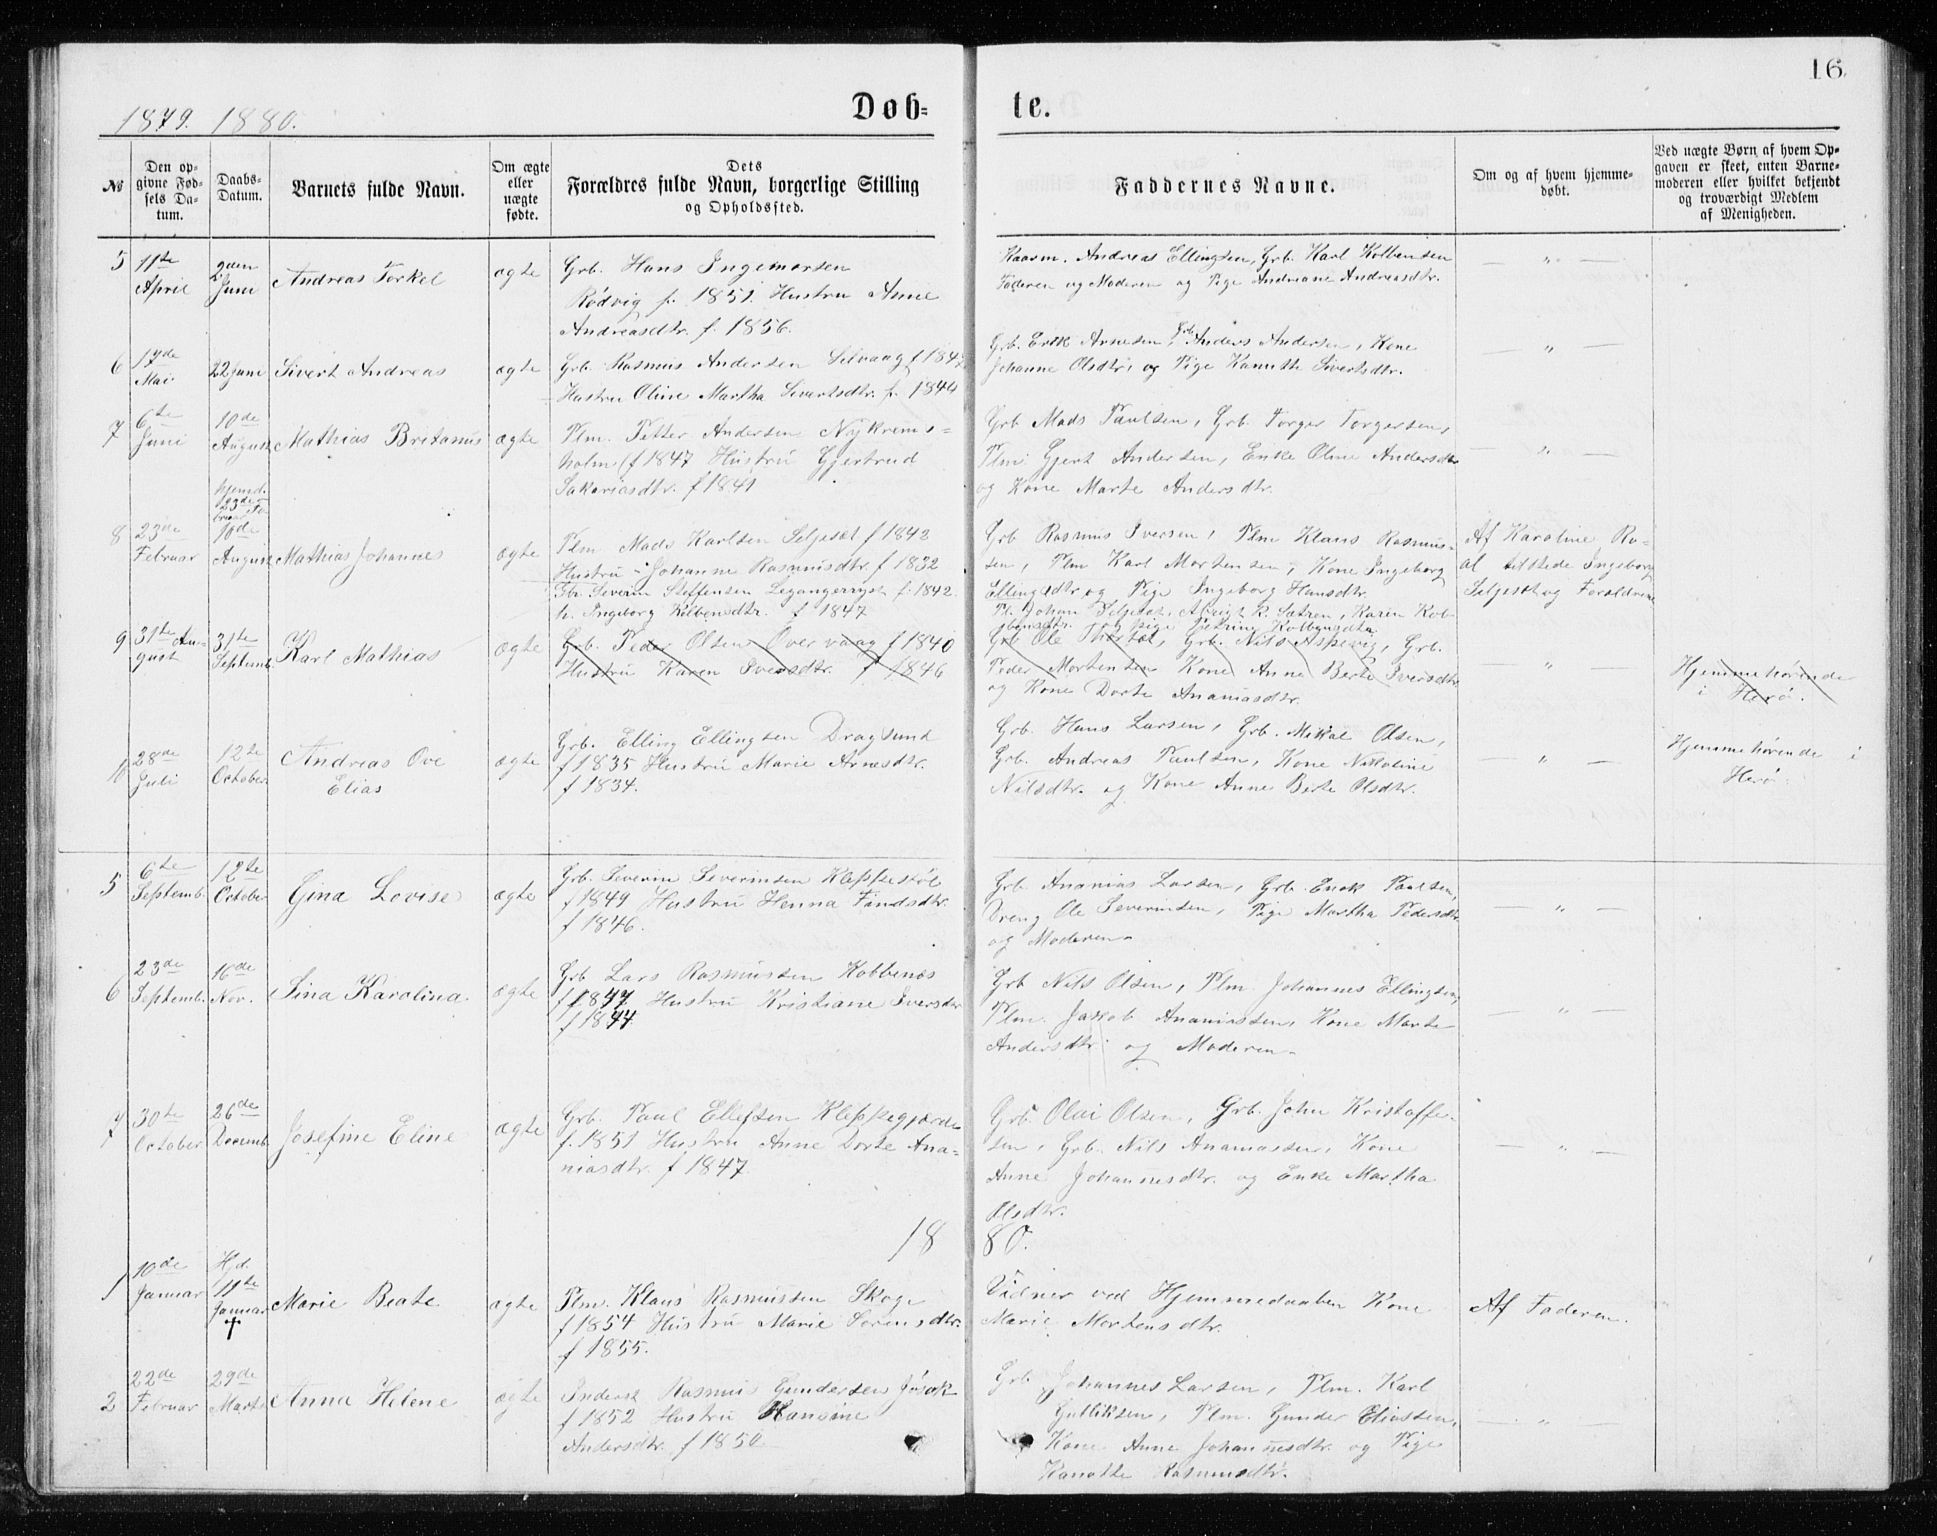 16.
1879. 1880.
Døb=
te.
№
Den op=
givne Fød=
sels Da=
tum.
Daabs=
Datum.
Barnets fulde Navn.
Om ægte
eller
uægte
fødte.
Dets
Forældres fulde Navn, borgerlige Stilling
og Opholdssted.
Faddernes Navne.
Om og af hvem hjemme=
døbt.
Ved uægte Børn af hvem Op=
gaven er skeet, enten Barne=
moderen eller hvilket bekjendt
og troværdigt Medlem
af Menigheden.
5
11te
April
2den
Juni
Andreas Torkel
ægte
Grb. Hans Ingemarsen
Rødvig f. 1851. Hustru Anne
Andreasdtr. f. 1856.
Kaarm. Andreas Ellingsen, Grb. Karl Kolbensen
Faderen og Moderen og Pige Andriane Andreasdtr.
— " —
6
17de
Mai
22 Juni
Sivert Andreas
ægte
Grb. Rasmus Andersen Selvaag f 1847
Hustru Oline Martha Sivertsdtr. f. 1844
Grb. Erik Arnesen, Grb. Anders Andersen, Kone
Johanne Olsdtr, og Pige Kanutte Sivertsdtr.
— " —
7
6te
Juni
10de
August
Mathias Britanus
ægte
Plm. Petter Andersen Nykrems=
holm f 1847 Hustru Gjertrud
Sakariasdtr. f 1841
Grb Mads Paulsen, Grb. Torger Torgersen,
Plm Gjert Andersen, Enke Oline Andersdtr
og Kone Marte Andersdtr.
— " —
8
23de
Februar
hjemd.
23de Fe
bruar
10de
August
Mathias Johannes
ægte
Plm. Mads Karlsen Seljesæt f 1842
Hustru - Johanne Rasmusdtr. f 1832
Grb Rasmus Iversen, Plm Klaus Rasmus=
sen, Plm Karl Mortensen, Kone Ingeborg
Ellingsdtr og Pige Ingeborg Hansdtr.
Af Karoline Ro=
al tilstede Ingeborg
Seljesæt og Forældrene
9
31te Au=
gust
31te
Septemb.
Karl Mathias
ægte
Fbr. Severin Steffensen Legangerryst f. 1842.
h. Ingeborg Kolbensdtr. f 1847
Grb. Peder Olsen Overvaag f 1840
Hustru Karen Iversdtr. f 1846
Pl. Johan Seljesæt, Albrigt R. Sætren, Karen Kol=
bensdtr. og pige Petrine Kolbensdtr.
Grb Ole , Grb. Nils Aspevig, Grb.
Peder Mortensen Kone Anne Berte Iversdtr
og Kone Dorte Ananiasdtr.
" —
Hjemmehørende
i Herø.
10
28de
Juli
12te
October
Andreas Ove
Elias
ægte
Grb. Elling Ellingsen Dragsund
f 1835 Hustru Marie Arnesdtr.
f 1834.
Grb. Hans Larsen, Grb. Mikal Olsen,
Grb. Andreas Paulsen, Kone Nikoline
Nilsdtr. og Kone Anne Berte Olsdtr.
— " —
Hjemmehørende i
Herø.
5
6te
Septemb.
12te
October
Gina Lovise
ægte
Grb. Severin Severinsen Kleppestøl
f 1849 Hustru Henna Findsdtr.
f 1846.
Grb. Ananias Larsen, Grb. Enok Paulsen,
Dreng Ole Severinsen, Pige Martha Pedersdtr.
og Moderen.
— " —
6
23de
Septemb.
16de
Nov.
Sina Karolina
ægte
Grb. Lars Rasmussen Kobbenes
f 1847 Hustru Kristiane Iversdtr
f 1844.
Grb Nils Olsen, Plm. Johannes Ellingsen,
Plm. Jakob Ananiassen, Kone Marte
Andersdtr og Moderen.
— " —
7
30te
October
26de
Decemb.
Josefine Eline
ægte
Grb. Paul Ellefsen Kleppegjærde
f. 1851 Hustru Anne Dorte Ana=
niasdtr. f 1847.
Grb. Olai Olsen, Grb. John Kristoffe=
sen, Grb. Nils Ananiassen, Kone
Anne Johannesdtr. og Enke Martha
Olsdtr.
— " —
18
80.
1
10de
Januar
Hjd
11te
Januar
†
Marie Beate
ægte
Plm. Klaus Rasmussen Skoge
f 1854 Hustru Marie Sørensdtr.
f 1855.
Vidner ved Hjemmedaaben Kone
Marie Mortensdtr.
Af Faderen.
2
22de
Februar
29de
Marts
Anna Helene
ægte
Inderst Rasmus Gundersen Jøsok
f 1852 Hustru Hansine
Andersdtr. f 1850
Grb Johannes Larsen, Plm. Karl
Gulliksen, Plm. Gunder Eliassen,
Kone Anne Johannesdtr. og Pige
Kanutte Rasmusdtr.
— " —